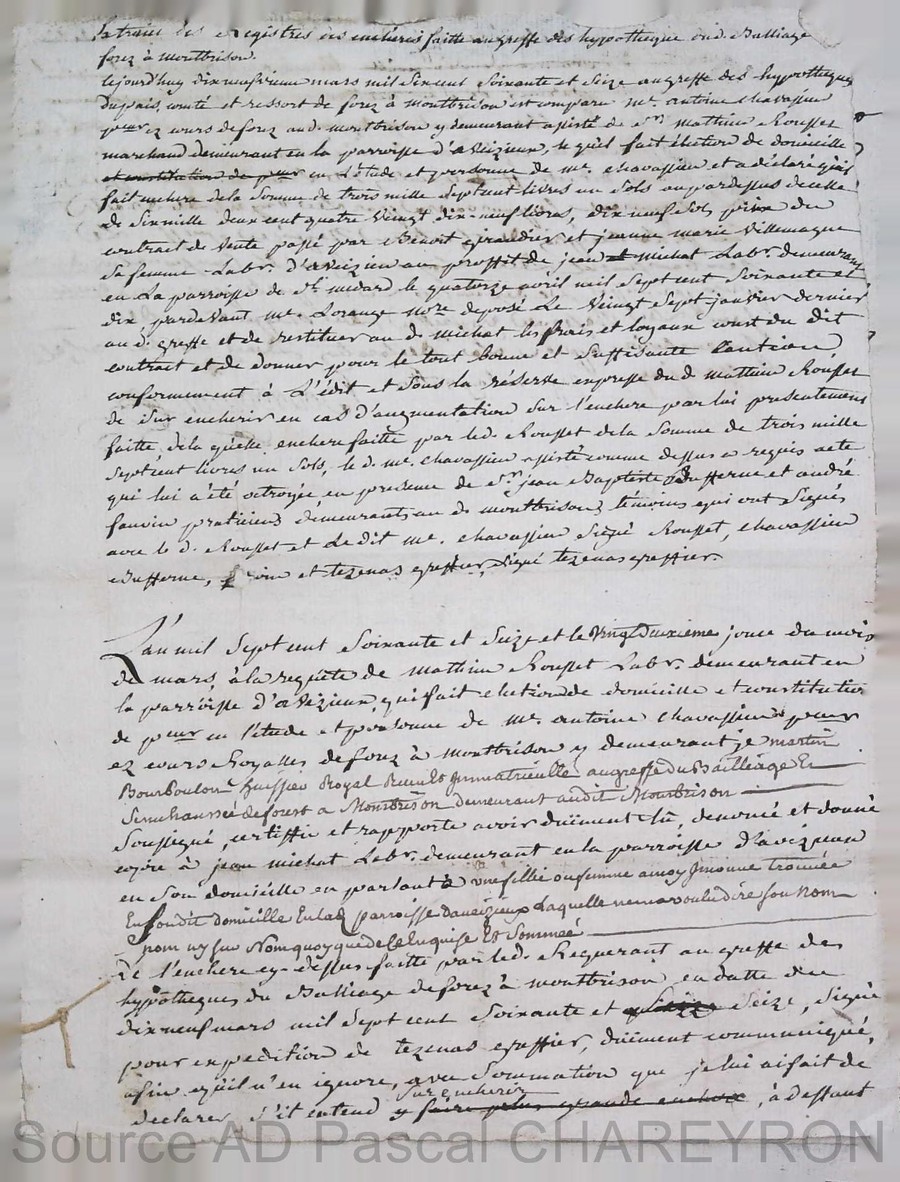 Extrait des Registres des encheres faitte au greffe des hypotheque dud. Balliage
forez a montbrison.
Cejourdhuy dix neufvieme mars mil Six cent Soixante et Seize au greffe des hypotheques
du pais, comté et ressort de forez à montbrison est comparu me. antoine chavassieu
peur ez cours de forez aud. montbrison y demeurant assisté de Sr. mathieu Rousset
marchand demeurant en la parroisse d'aveizieux, lequel fait élection de domicille
et constitution de peur en L'étude et personne de me. chavassieu et a déclaré qu'il
fait enchere de la Somme de trois mille Sept cent livres un Sols au par dessus de celle
de Six mille deux cent quatre vingt dix-neuf livres, dix neuf Sols prix du
contract de vente passé par Benoit giraudier et jeanne marie Villemagne
Sa femme Labr. d'aveizieu au proffit de jean michat Labr. demeurant
en La parroisse de St. medard le quatorze avril mil Sept cent Soixante et
dix, pardevant me. Lorange nore deposé Le vingt Sept janvier dernier
au d. greffe et de restituer au d. michat les frais et loyaux coust du dit
contract et de donner pour le tout bonne et Suffisante Caution
conformement à L'édit et Sous la réserve expresse du d. mathieu Rousset
de Sur encherir en cas d'augmentation Sur l'enchere par lui presentement
faitte, de laquelle enchere faitte par led. Rousset de la Somme de trois mille
Sept cent livres un Sols, led. me. chavassieu assisté comme dessus a requis acte
qui lui a été octroyée en presence de Sr. jean Baptiste Bufferne et andré
fauvin praticiens demeurants au d. montbrison témoins qui ont Signés
avec le d. Rousset et Le dit me. chavassieu Signé Rousset, chavassieu
Bufferne, et tezenas greffier, Signé tezenas greffier.
L'an mil Sept cent Soixante et Seize et le vingt Deuxieme jour du mois
de mars, à la requete de mathieu Rousset Labr. demeurant en
la parroisse d'aveizieux, qui fait election de domicille et constitution
de peur en l'étude et personne de me. antoine chavassieu peur
ez cours Royalles de forez à montbrison y demeurant, je martin
Bourboulon huissier Royal Receu et Immatriculle au greffe du Bailliage Et
Senechaussée de forest a Montbrison demeurant audit Montbrison
Soussigné, certiffie et rapporte avoir düement lû, denoncé et donné
copie à jean michat Labr. demeurant en la parroisse d'aveizieux
en Son domicille en parlant à une fille ou femme a moy Inconue trouvée
En Son dit domicille En lad parroisse daveizieux Laquelle ne ma voulu dire Son nom
nom ny Sur Nom quoyque de ce Enquise Et Sommée
de l'enchere cy-dessus faitte par led. Requerant au greffe des
hypotheques du Balliage de forez à montbrison en datte du
dix neuf mars mil Sept cent Soixante et Seize, Signé
pour expedition de tezenas greffier, düement communiqué,
afin qu'il n'en ignore, avec Sommation que je lui ai fait de
Sur encherir
declarer S'il entend y faire plus grande enchere, à deffaut
Source AD Pascal CHAREYRON